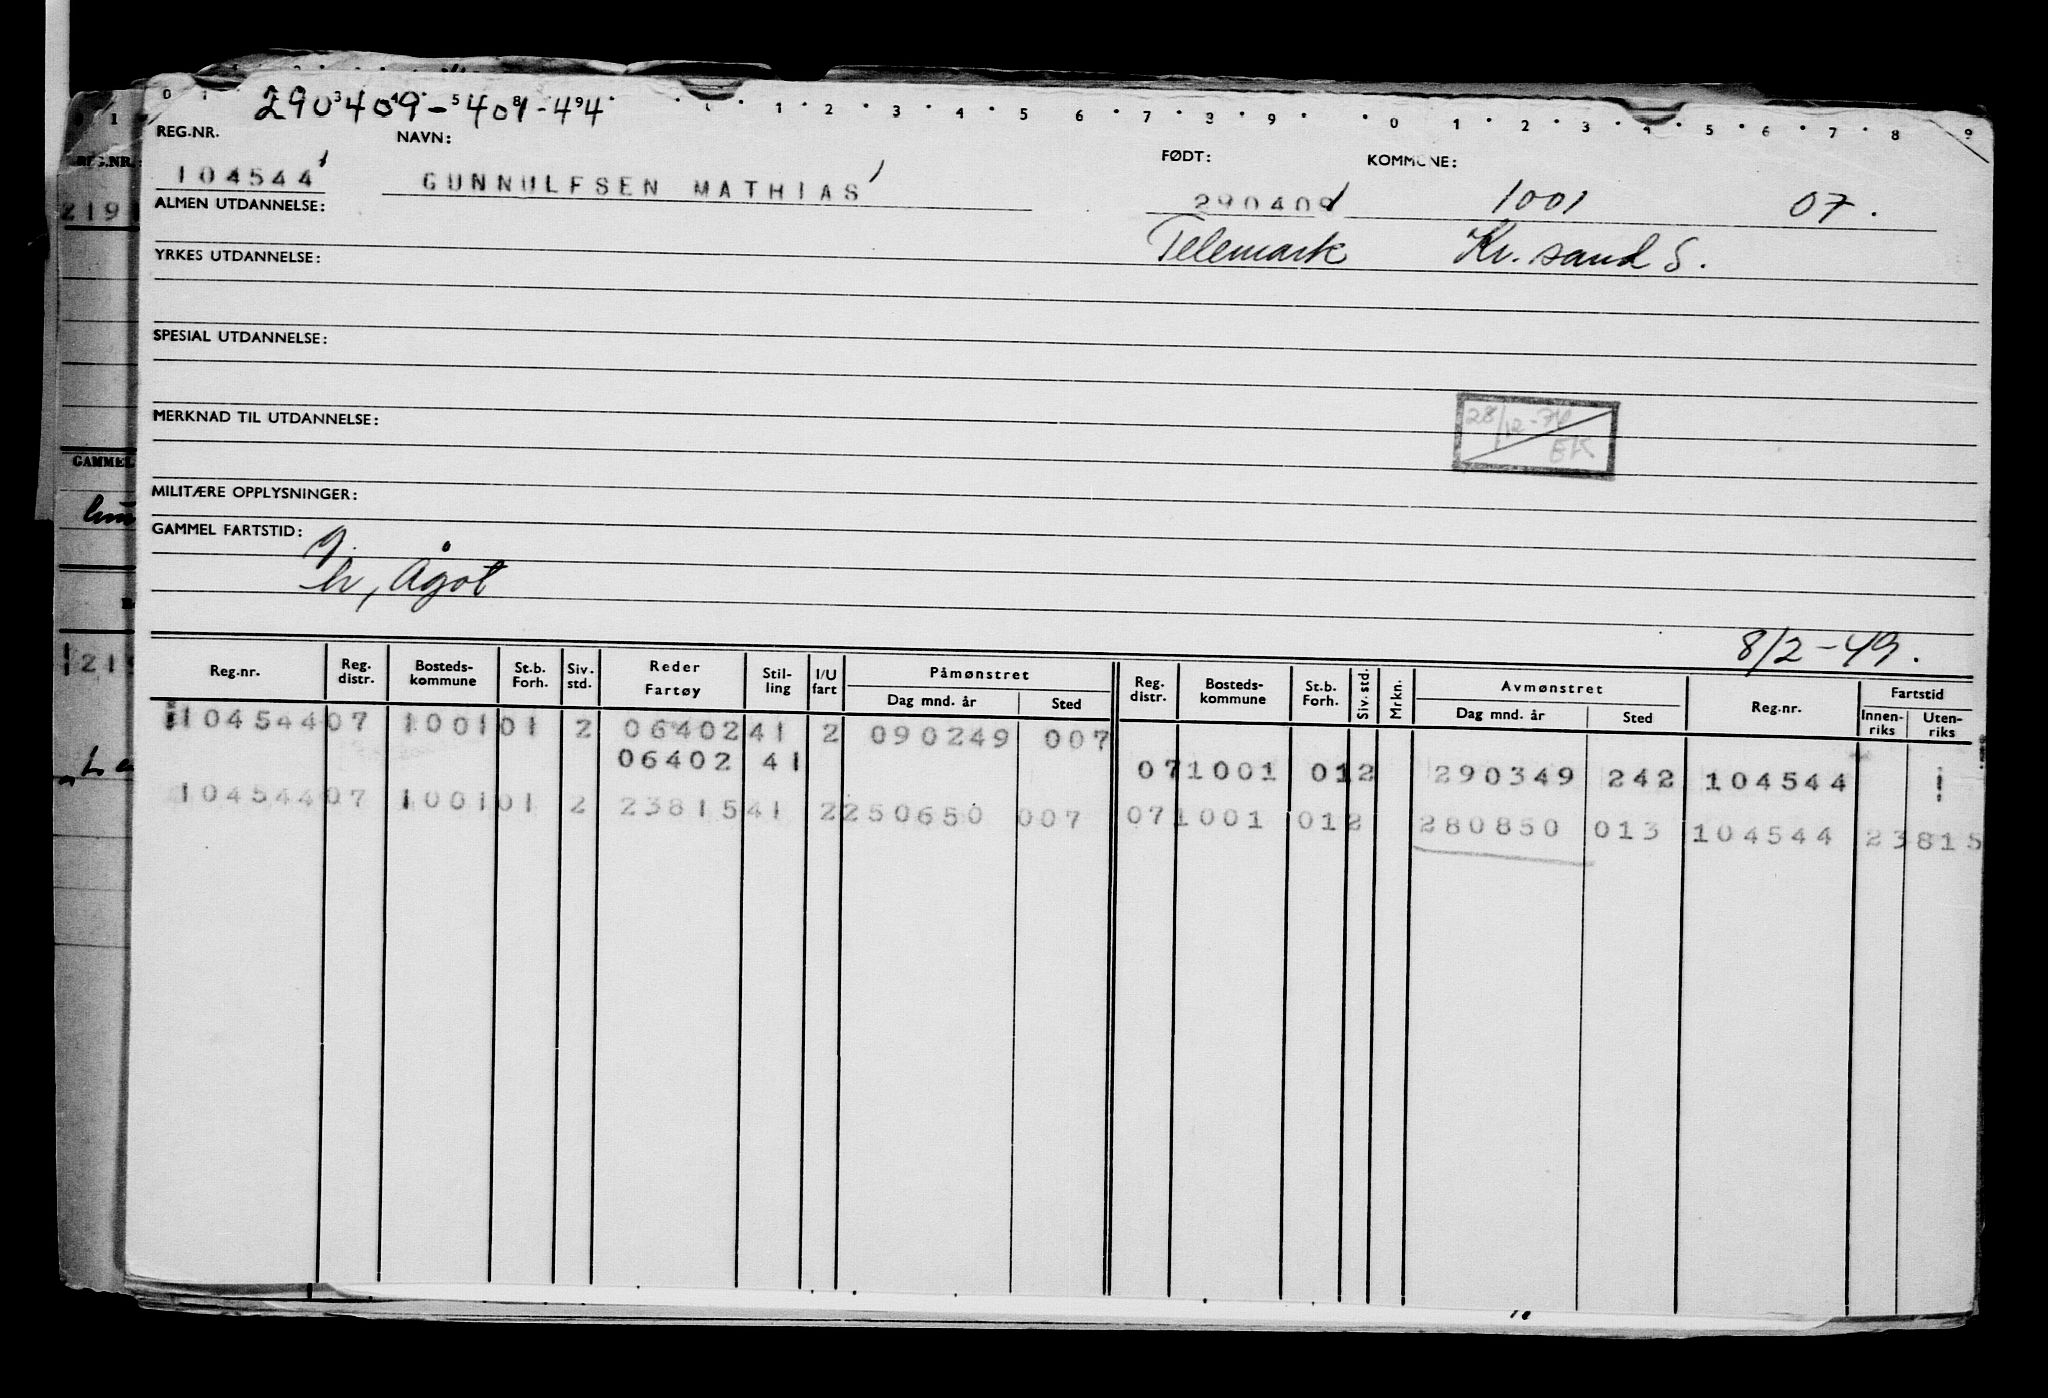 290409-401-44
0 1 1 2 3 4 5 6 7 8 9 0 1 2 3 4 5 6 7 8 9
REG.NR. NAVN: FØDT: KOMMUNE:
104544 GUNNULFSEN MATHIAS 290409 1001 07.
ALMEN UTDANNELSE: Telemark Kr. sand S.
YRKES UTDANNELSE:
SPESIAL UTDANNELSE:
MERKNAD TIL UTDANNELSE:
28/12-74
EK
MILITÆRE OPPLYSNINGER:
GAMMEL FARTSTID:
g.
h, Ågot
8/2-49.
Reg.nr. Reg. distr. Bosteds-kommune St.b. Forh. Siv. std. Reder Fartøy Stil-ling I/U fart Påmønstret Dag mnd. år Sted Reg. distr. Bosteds-kommune St.b. Forh. Siv. std. Mrkn. Avmønstret Dag mnd. år Sted Reg.nr. Fartstid Innen-riks Uten-riks
104544 07 1001 01 2 06402 41 2 090249 007
06402 41 07 1001 01 2 290349 242 104544 1
104544 07 1001 01 2 23815 41 2 250650 007 07 1001 01 2 280850 013 104544 23815